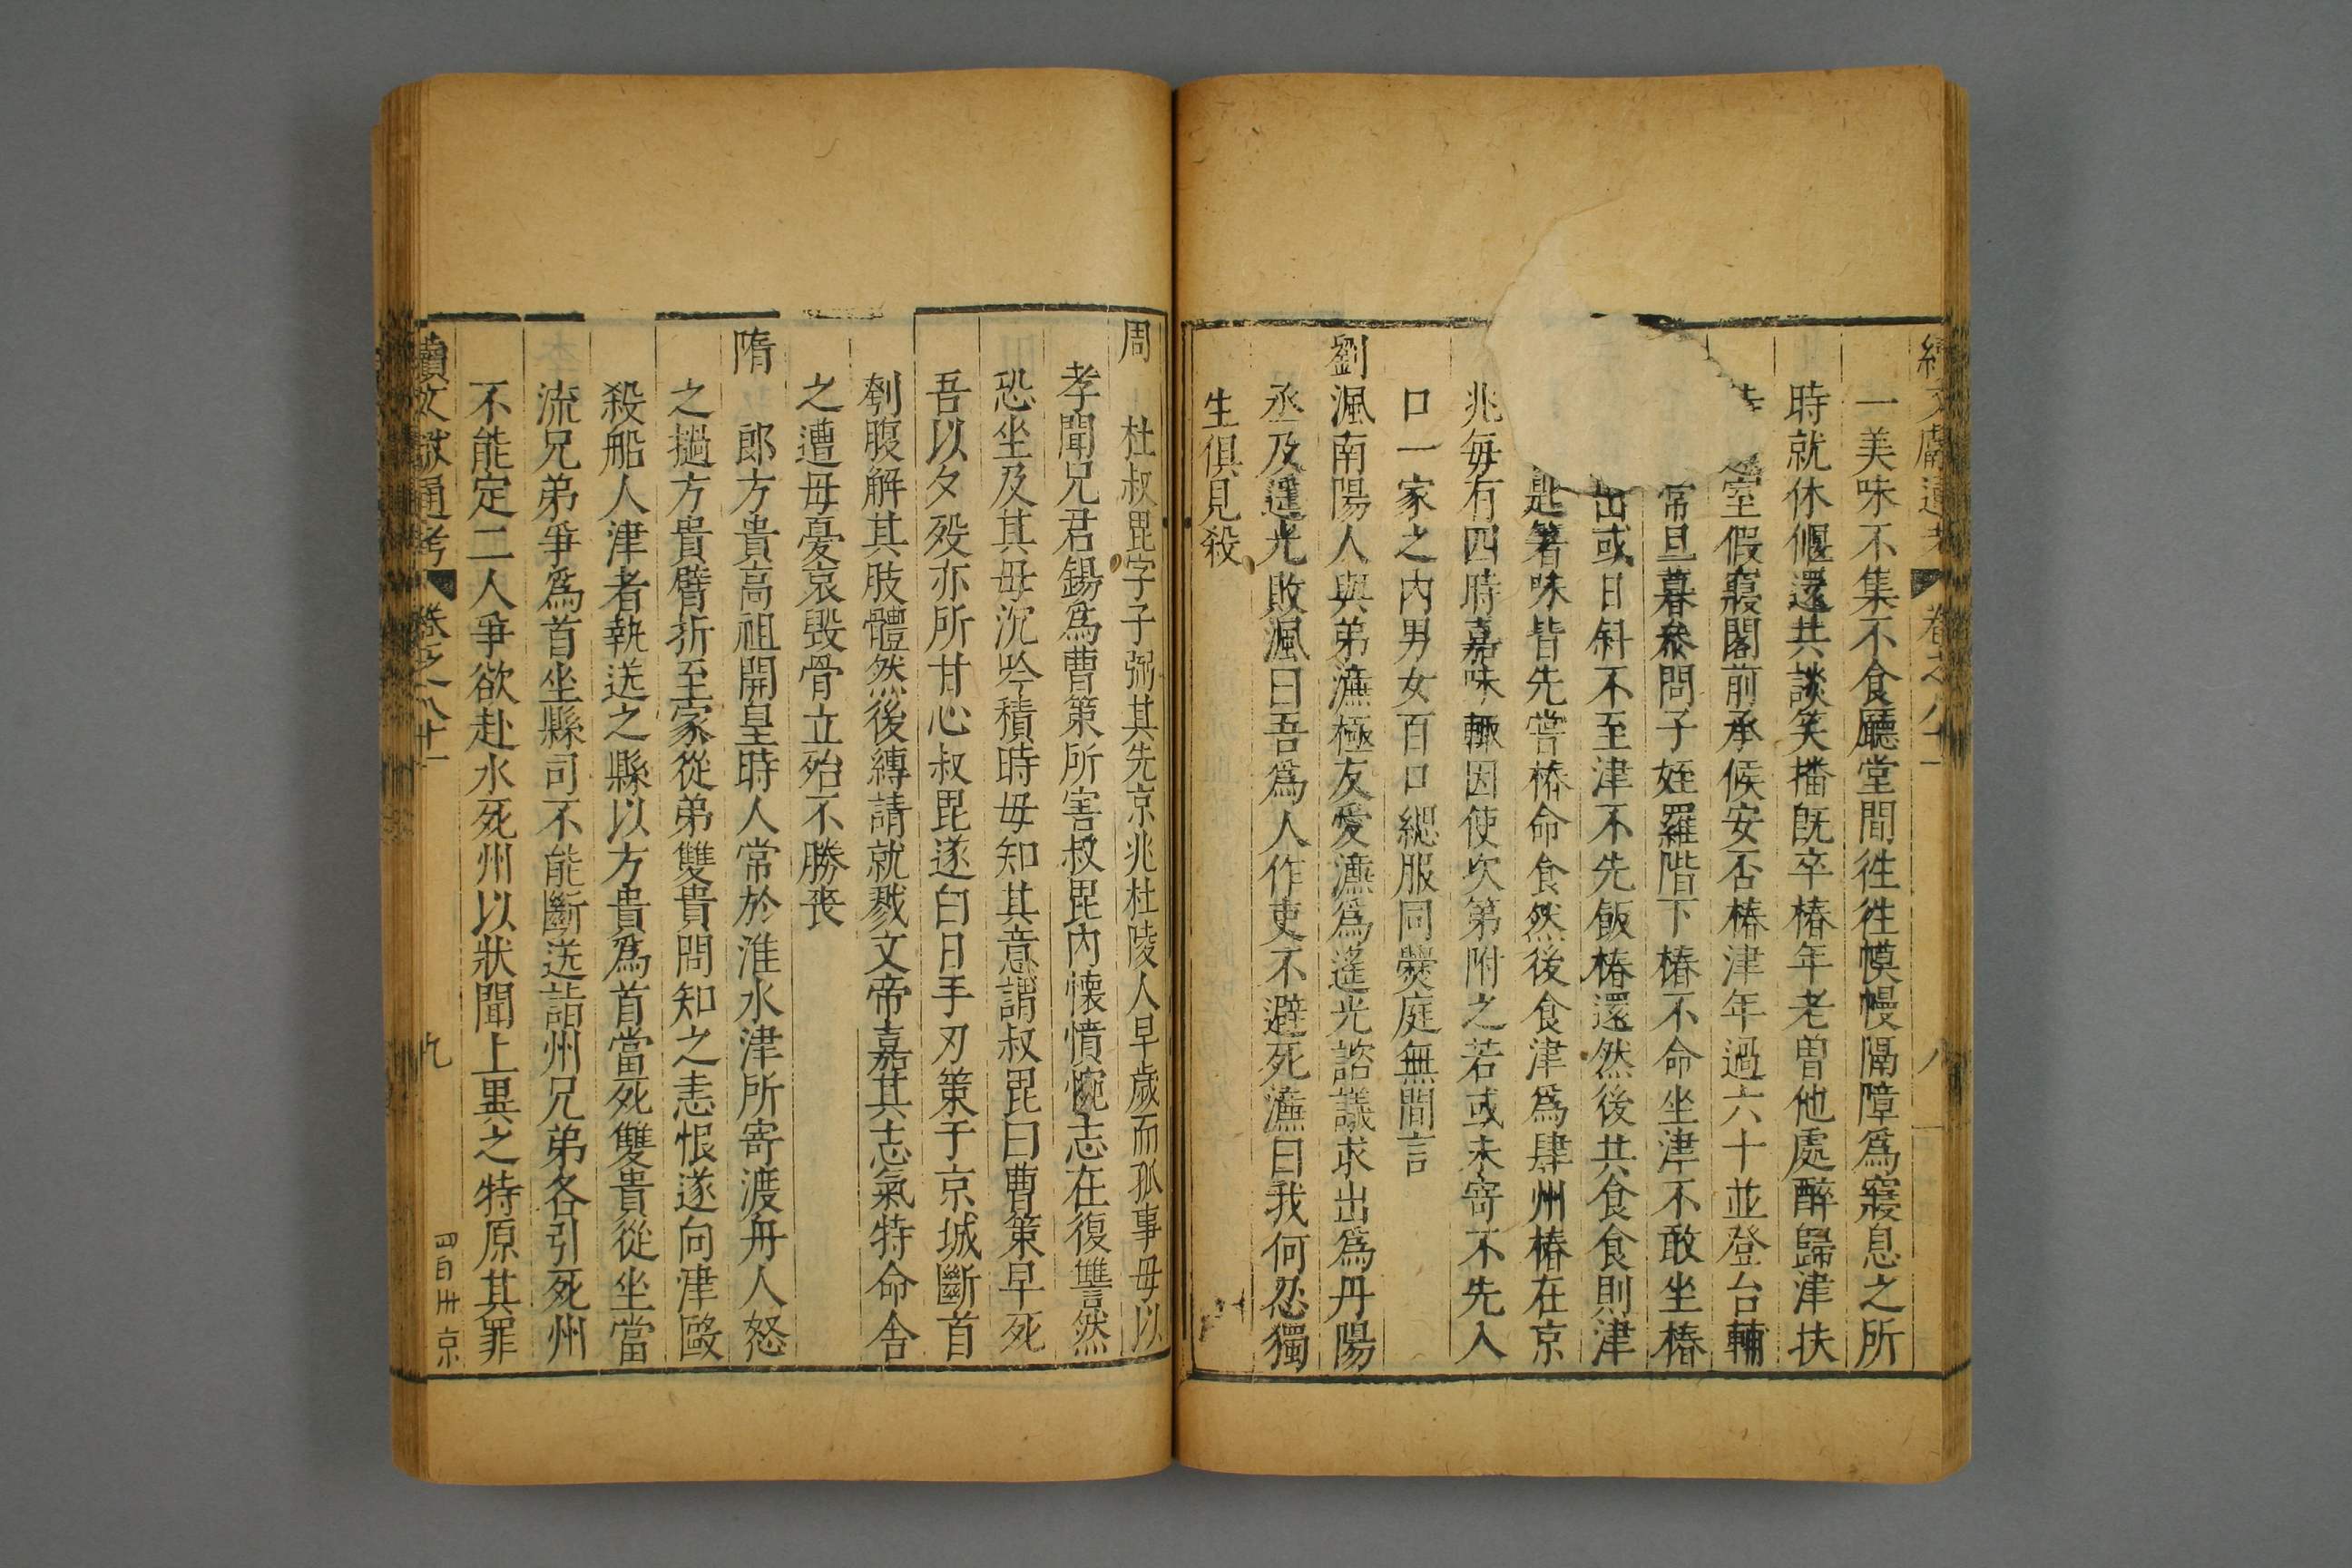 續文獻通考 卷之八十一 八
一美味不集不食廳堂間徃徃幙幔隔障爲寢息之所
時就休偃還共談笑播旣卒椿年老曽他處醉歸津扶
室假寢閣前承候安否椿津年過六十並登台輔椿
常旦暮叅問子姪羅階下椿不命坐津不敢坐椿
出或日斜不至津不先飯椿還然後共食食則津
匙箸味皆先甞椿命食然後食津爲肆州椿在京
兆每有四時嘉味輙因使次第附之若或未寄不先入
口一家之内男女百口緦服同爨庭無間言
劉渢南陽人與弟溓極友愛溓爲遙光諮議求出爲丹陽
丞及遙光敗渢曰吾爲人作吏不避死溓曰我何忍獨
生俱見殺
周 杜叔毘字子弼其先京兆杜陵人早歲而孤事毋以
孝聞兄君錫爲曹策所害叔毘内懐憤惋志在復讐然
恐坐及其毋沉吟積時毋知其意謂叔毘曰曹策早死
吾以夕殁亦所甘心叔毘遂白日手刃策于京城斷首
刳腹解其肢體然後縛請就戮文帝嘉其志氣特命舎
之遭毋憂哀毁骨立殆不勝䘮
隋 郎方貴高祖開皇時人常於淮水津所寄渡舟人怒
之撾方貴臂折至家從弟雙貴問知之恚恨遂向津毆
殺船人津者執送之縣以方貴爲首當死雙貴從坐當
流兄弟爭爲首坐縣司不能斷送詣州兄弟各引死州
不能定二人爭欲赴水死州以狀聞上異之特原其罪
續文獻通考 卷之八十一 九 四百卅 京